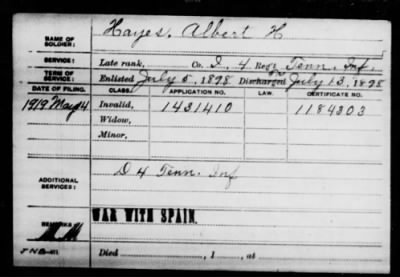 NAME OF SOLDIER: Hayes, Albert H
SERVICE: Late rank, Co. D, 4 Reg't Tenn. Inf.
TERM OF SERVICE: Enlisted July 5, 1898 Discharged July 13, 1898
DATE OF FILING. CLASS. APPLICATION NO. LAW. CERTIFICATE NO.
1919 May 14 Invalid, 1431410 1184303
Widow,
Minor,
ADDITIONAL SERVICES: D 4 Tenn. Inf
REMARKS: WAR WITH SPAIN.
Died , 1 , at